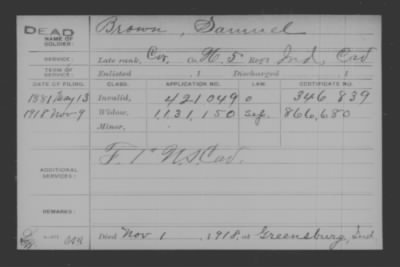 DEAD
NAME OF SOLDIER:
Brown, Samuel
SERVICE:
Late rank, Cor. Co. H. 5 Reg't Ind. Cav
TERM OF SERVICE:
Enlisted , 1 Discharged , 1
DATE OF FILING. CLASS. APPLICATION NO. LAW. CERTIFICATE NO.
1881 May 13 Invalid, 421049 346 839
1918 Nov 9 Widow, 1,131,150 866,680
Minor,
ADDITIONAL SERVICES:
F. 1" U.S. Cav.
REMARKS:
Died Nov 1, 1918, at Greensburg, Ind